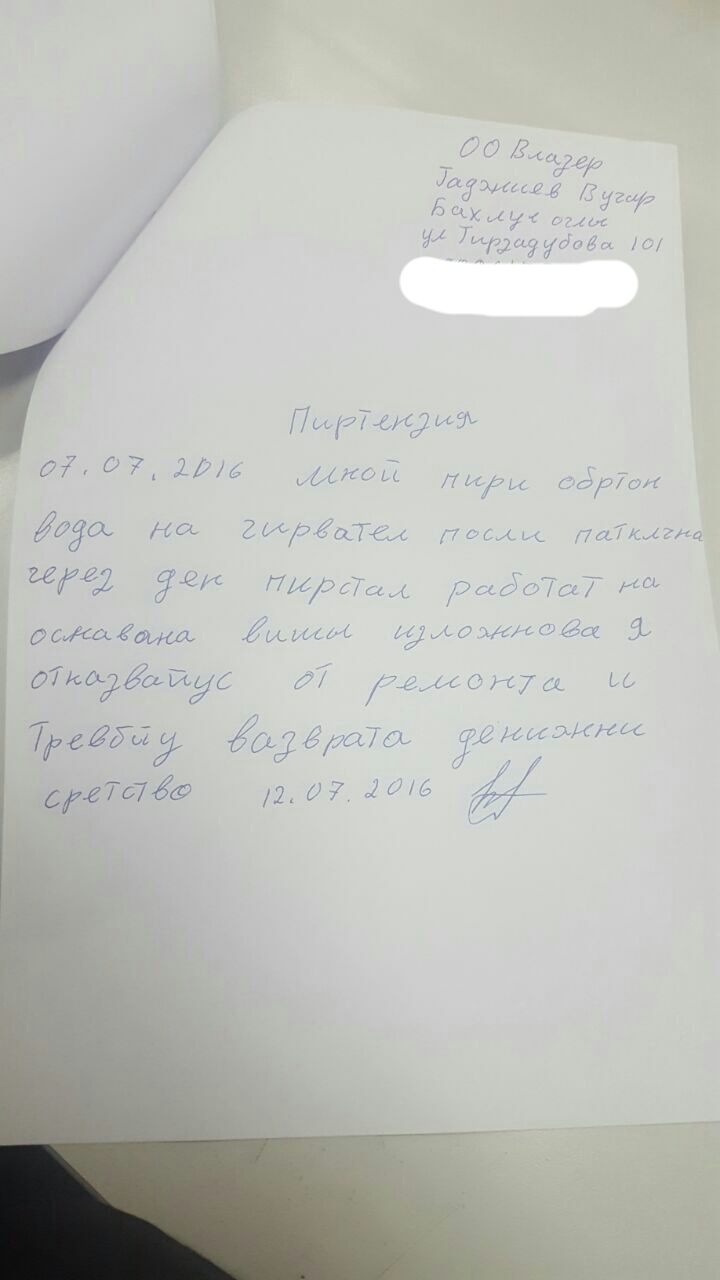 ОО Влазер
Гаджиев Вугар
Бахлул оглы
ул Гирзадубова 101
Пиртензия
07.07.2016 мной пири обртон
вода на гирвател посли паткична
через ден пирстал работат на
оснавана вишы изложннова Я
отказвайус от ремонта и
Тревбйу вазврата денижнни
сретство 12.07.2016